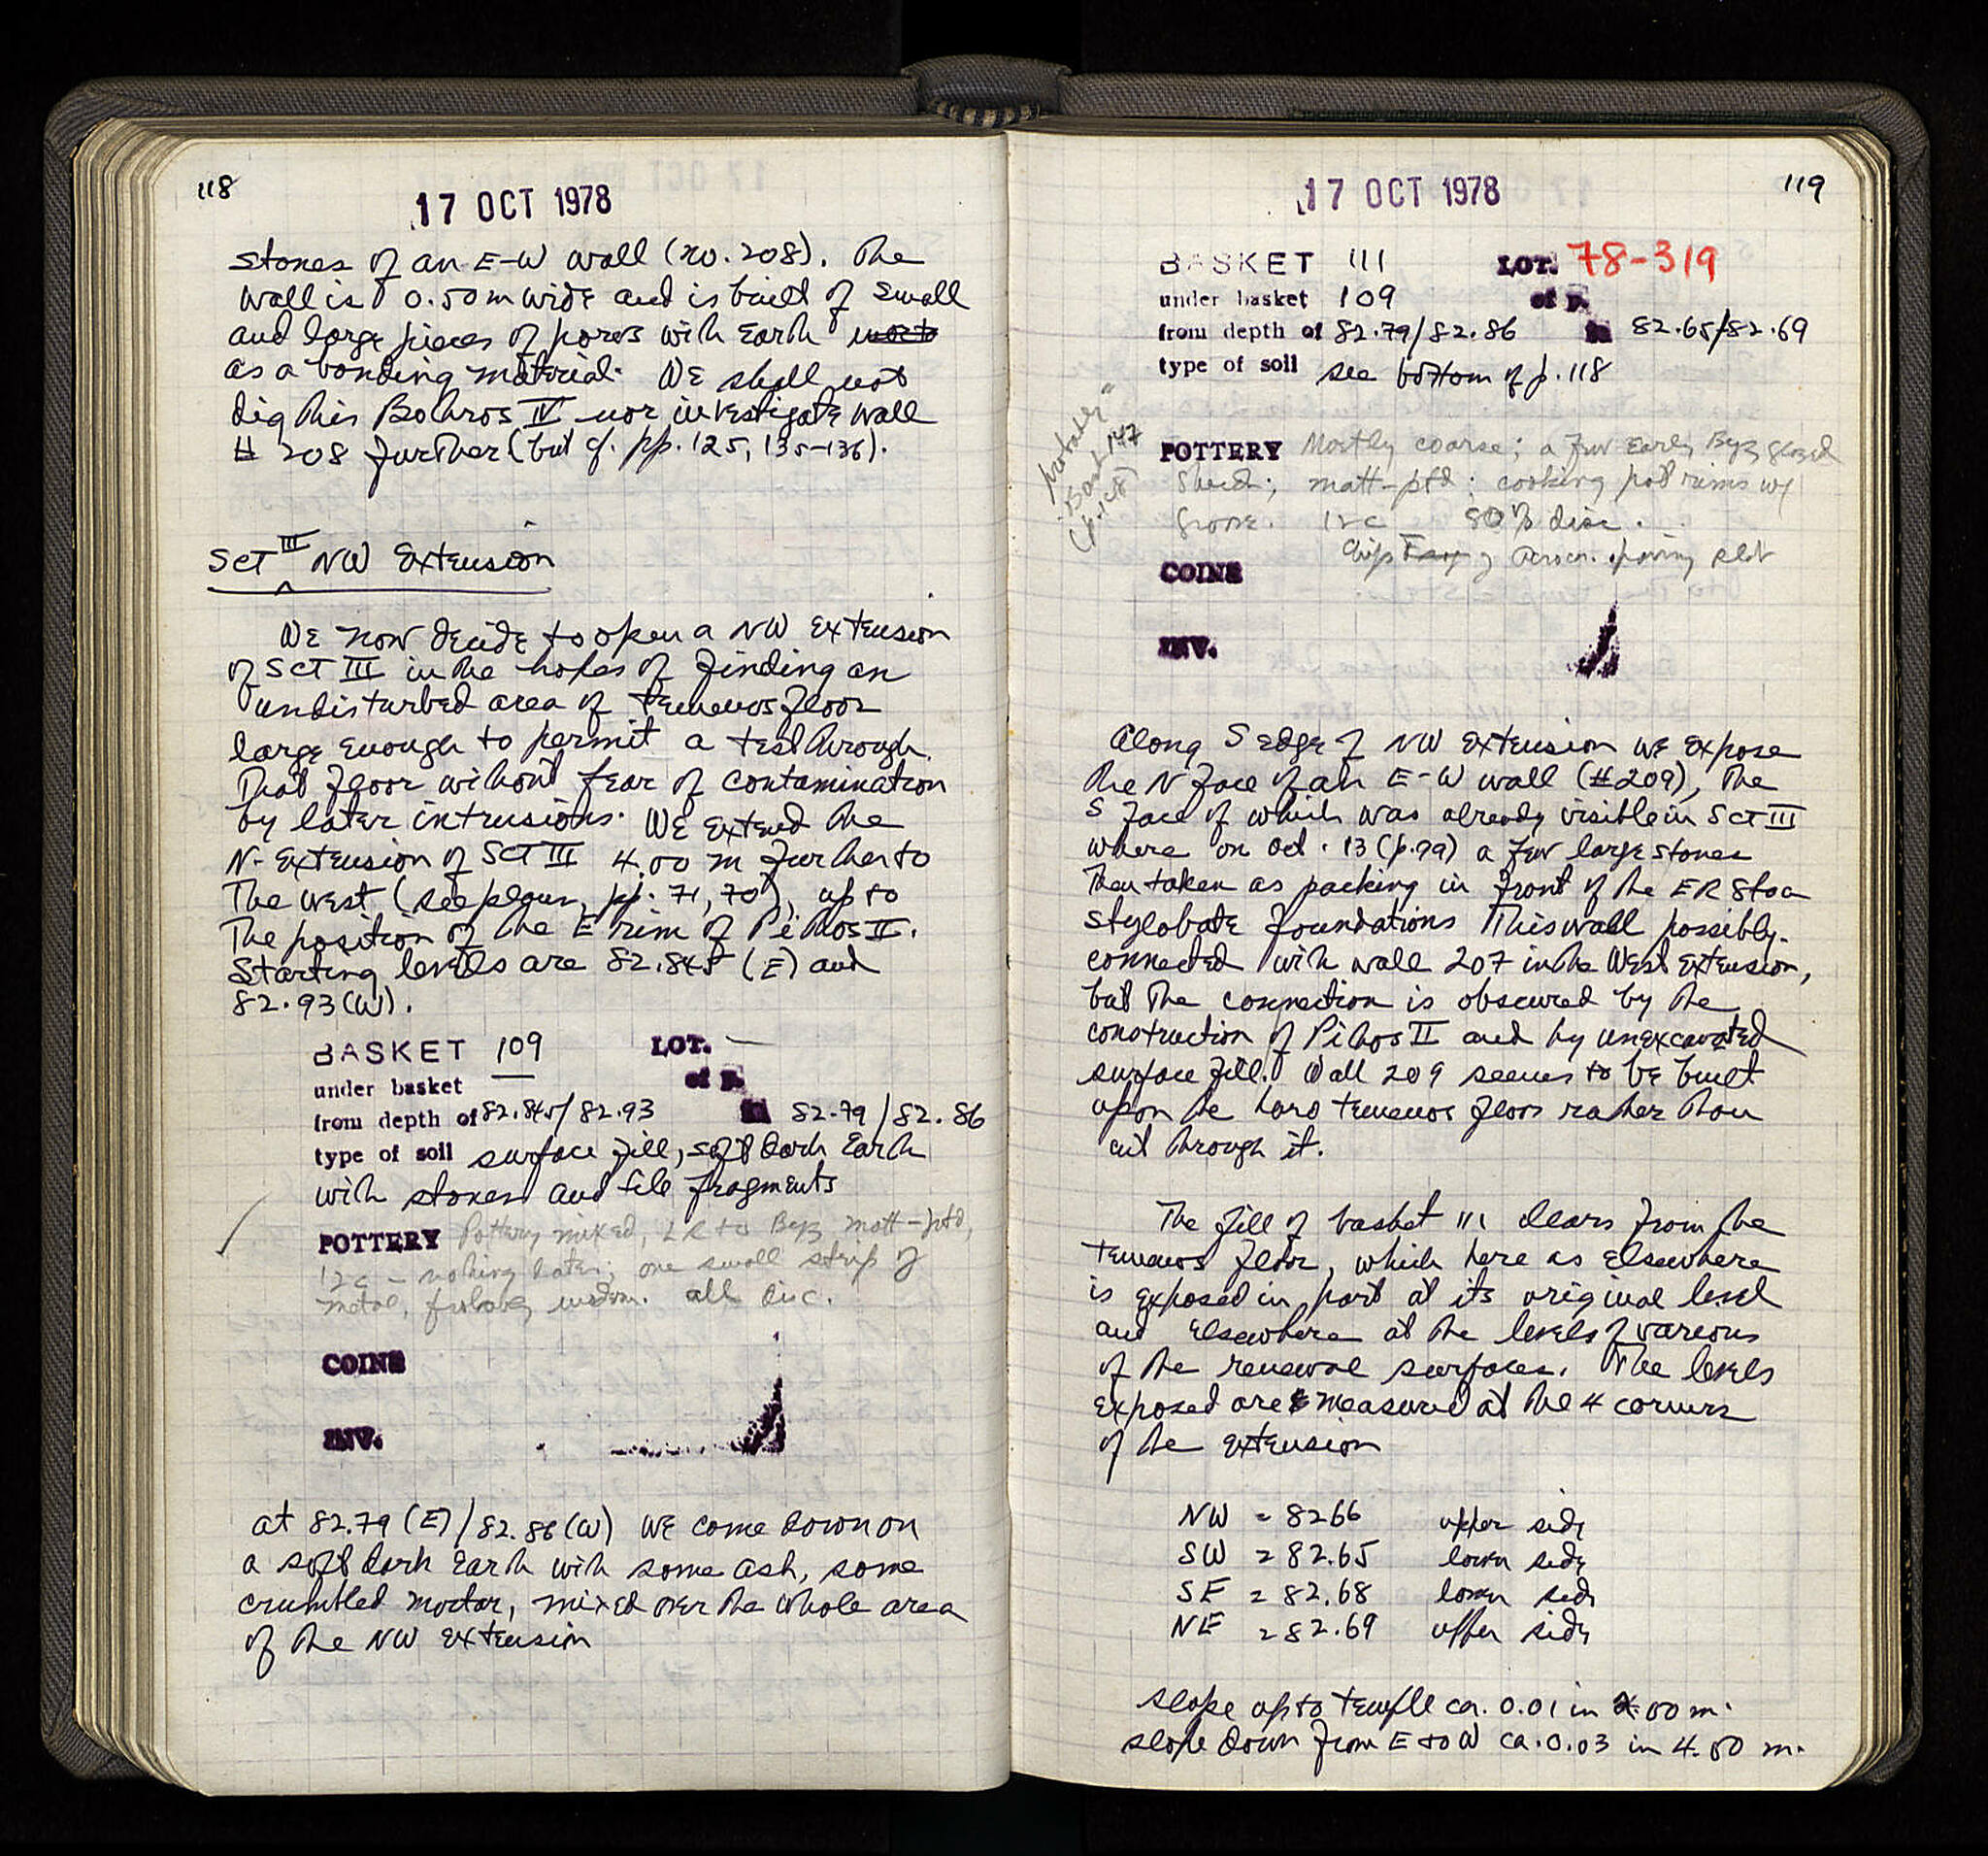 118
17 OCT 1978
stones of an E-W wall (no. 208). The
wall is 0.50 m wide and is built of small
and large pieces of poros with Earth
as a bonding material. We shall not
dig this Bothros IV nor investigate wall
# 208 further (but cf. pp. 125, 135-136).
Sct III NW Extension
We now decide to open a NW Extension
of Sct III in the hopes of finding an
undisturbed area of temenos floor
large enough to permit a test through
that floor without fear of contamination
by later intrusions. We extend the
N-Extension of Sct III 4.00 m further to
The west (see plan, pp. 71, 70), up to
The position of the E rim of Pithos II.
Starting levels are 82.845 (E) and
82.93 (W).
BASKET 109 LOT. —
under basket — of p.
from depth of 82.845/82.93 to 82.79/82.86
type of soil surface fill, soft dark Earth
with stones and tile fragments
POTTERY Pottery mixed, LR to Byz matt-ptd,
12c - nothing later; one small strip of
metal, probably modern. all disc.
COINS
INV.
at 82.79 (E)/82.86 (W) we come down on
a soft dark Earth with some ash, some
crumbled mortar, mixed over the whole area
of the NW Extension
119
17 OCT 1978
BASKET 111 LOT. 78-319
under basket 109 of p.
from depth of 82.79/82.86 to 82.65/82.69
type of soil see bottom of p. 118
POTTERY Mostly coarse; a few Early Byz glazed
sherds; matt-ptd; cooking pot rims w/
groove. 12c 80% disc.
COINS
INV.
Along S edge of NW Extension we expose
the N face of an E-W wall (#209), the
S face of which was already visible in Sct III
where on Oct. 13 (p. 99) a few large stones
then taken as packing in front of the ER Stoa
stylobate foundations This wall possibly
connected with wall 207 in the West Extension,
but the connection is obscured by the
construction of Pithos II and by unexcavated
surface fill. Wall 209 seems to be built
upon the hard temenos floor rather than
cut through it.
The fill of basket 111 clears from the
temenos floor, which here as elsewhere
is exposed in part at its original level
and elsewhere at the levels of various
of the renewal surfaces. The levels
exposed are measured at the 4 corners
of the extension
NW = 82.66 upper side
SW = 82.65 lower side
SE = 82.68 lower side
NE = 82.69 upper side
slope up to temple ca. 0.01 in 2.00 m.
slope down from E to W ca. 0.03 in 4.00 m.